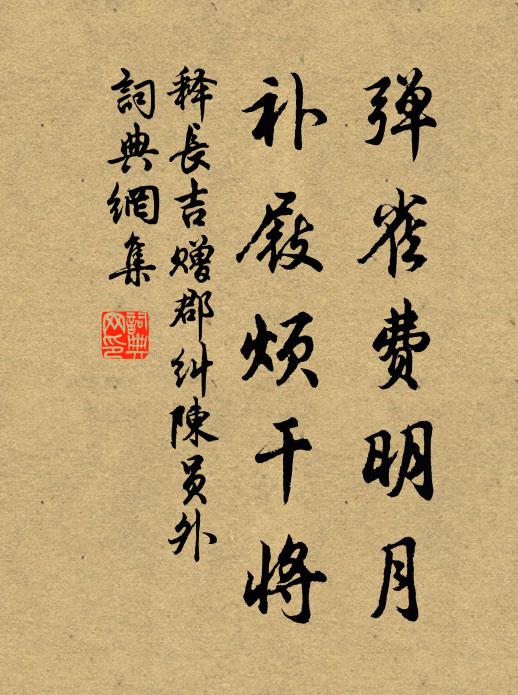 弹雀费明月
补屐烦干将
释長吉赠郡糾陳员外
詞典網集
詞典网印